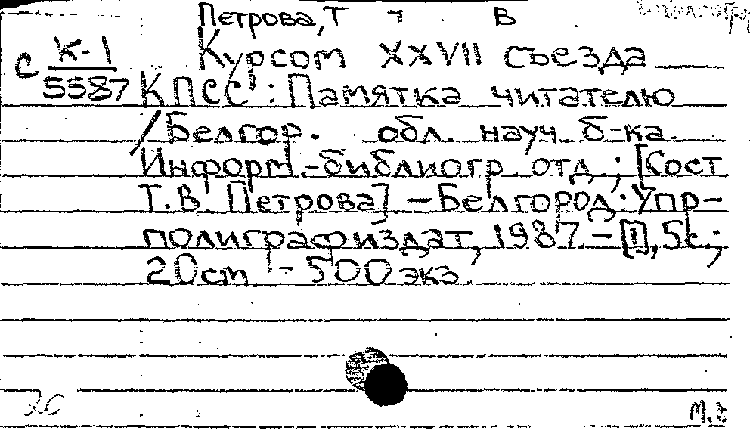 Петрова, Т В
С К-1 Курсом XXVII съезда
5587 КПСС : Памятка читателю
/ Белгор. обл. науч б-ка.
Информ.-библиогр отд ; [Сост
Т.В. Петрова] – Белгород: Упр-
полиграфиздат, 1987 – [1], 5с.;
20 cm - 500 экз.